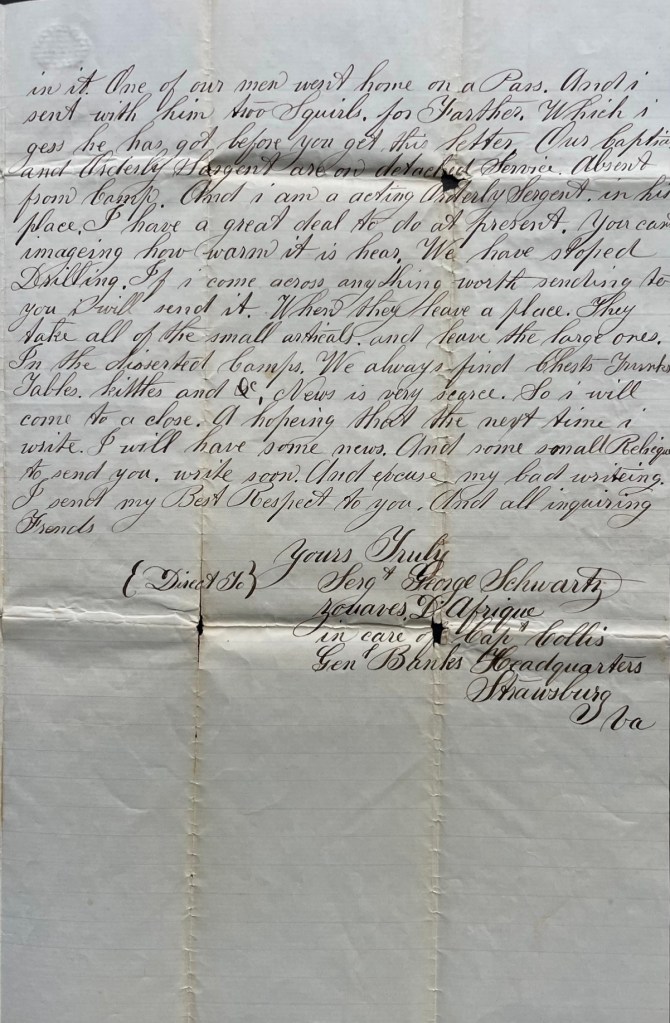 in it. One of our men went home on a Pass. And i
sent with him two Squirls. for Farther. Which i
gess he has got before you get this letter. Our Captin
and Orderly Sargent are on detached Service. Absent
from Camp. And i am a acting Orderly Sergent. in his
place. I have a great deal to do at present. You can
imageing how warm it is hear. We have stoped
Drilling. If i come across anything worth sending to
you i will send it. When they leave a place. They
take all of the small articals. and leave the large ones.
In the disserted Camps. We always find Chests Trunks
Tables. kittles and &c, News is very scarce. So i will
come to a close. A hopeing that the next time i
write. I will have some news. And some small Relieques
to send you. write soon. And excuse my bad writeing.
I send my Best Respect to you. And all inquiring
Frends
Yours Truly
{Direct To} Sergt George Schwartz
Zouaves, D'Afrique
in care of Capt Collis
Genl Banks Headquarters
Strawsburg
Va